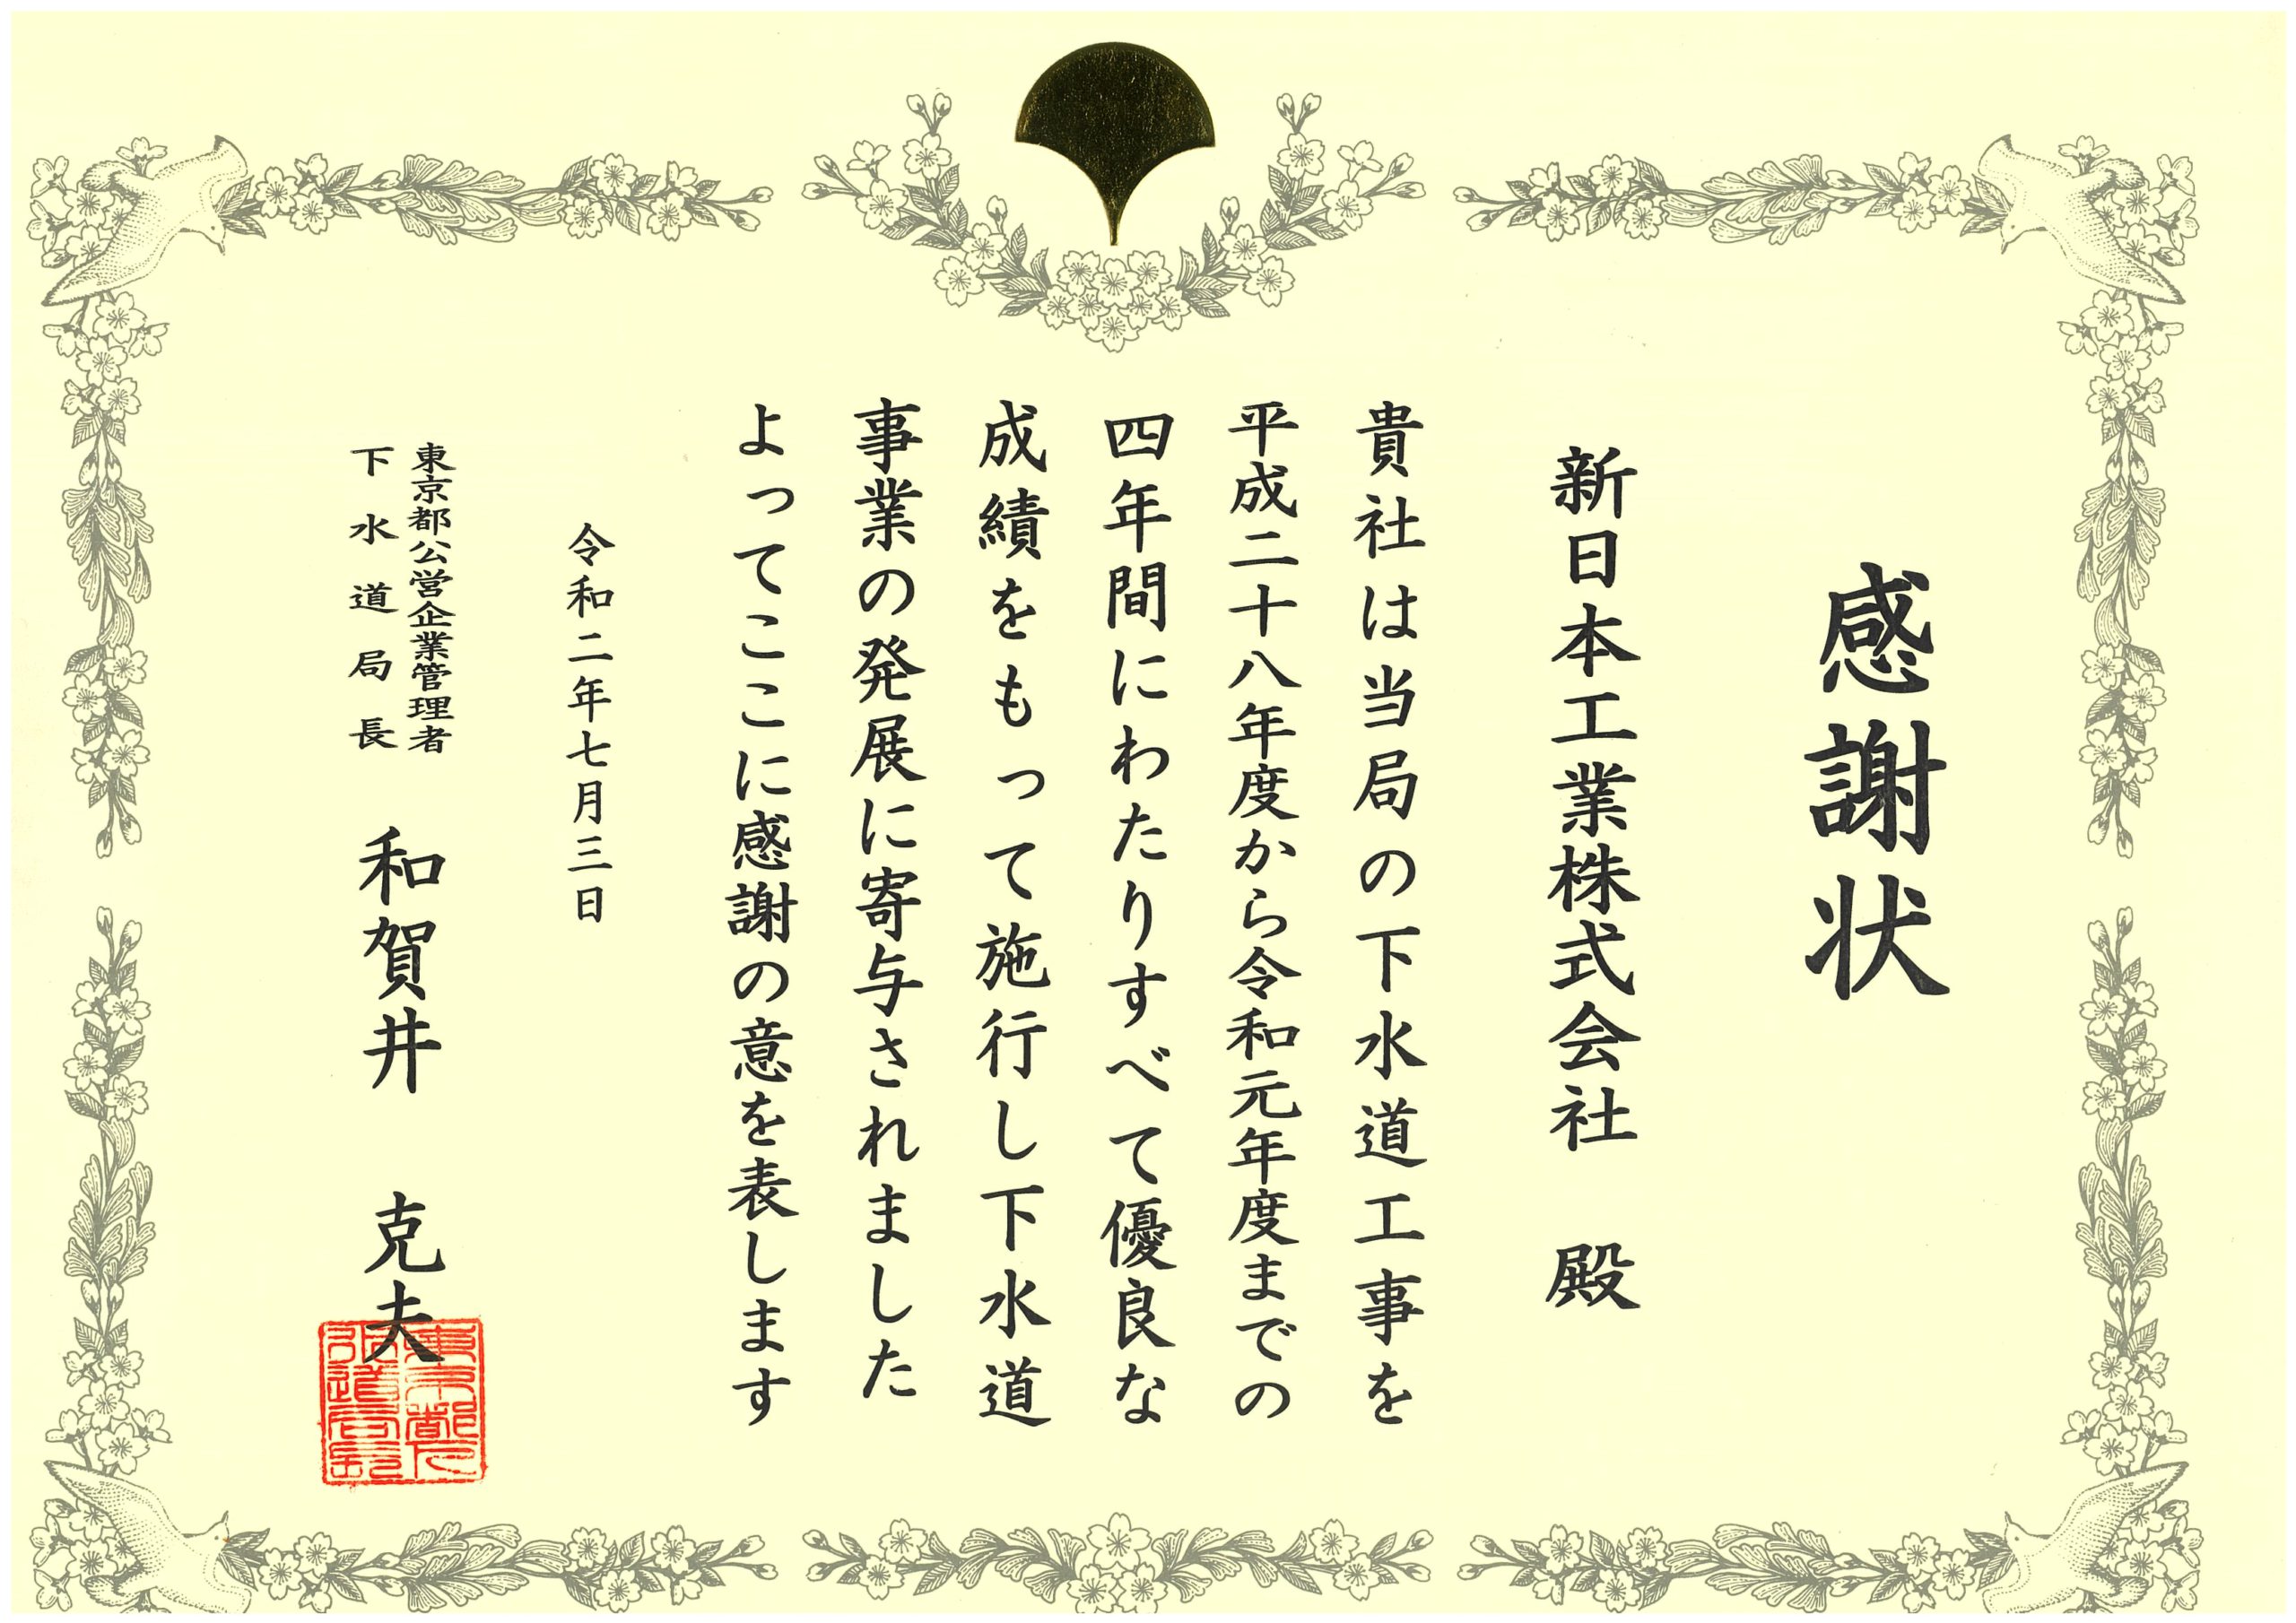 感謝状
新日本工業株式会社 殿
貴社は当局の下水道工事を
平成二十八年度から令和元年度までの
四年間にわたりすべて優良な
成績をもって施行し下水道
事業の発展に寄与されました
よってここに感謝の意を表します
令和二年七月三日
東京都公営企業管理者
下水道局長
和賀井 克夫
東京都下
水道局長